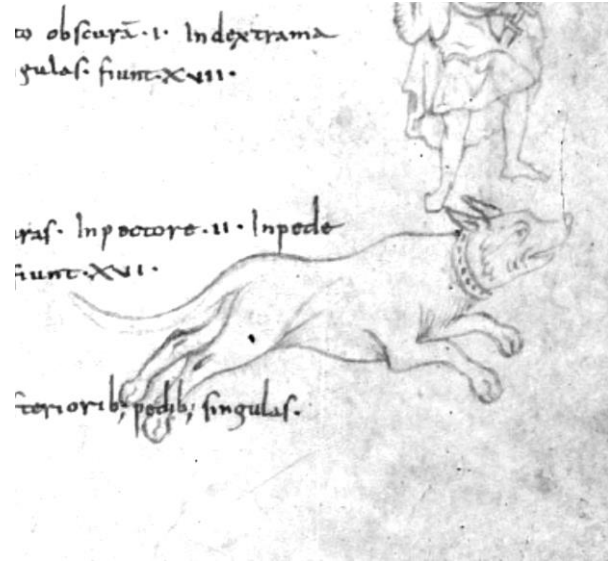 to obscurā · I · In dextra ma
gulas · fiunt · XVII ·
ras · In pectore · II · In pede
fiunt · XVI ·
teriorib; pedib; singulas ·